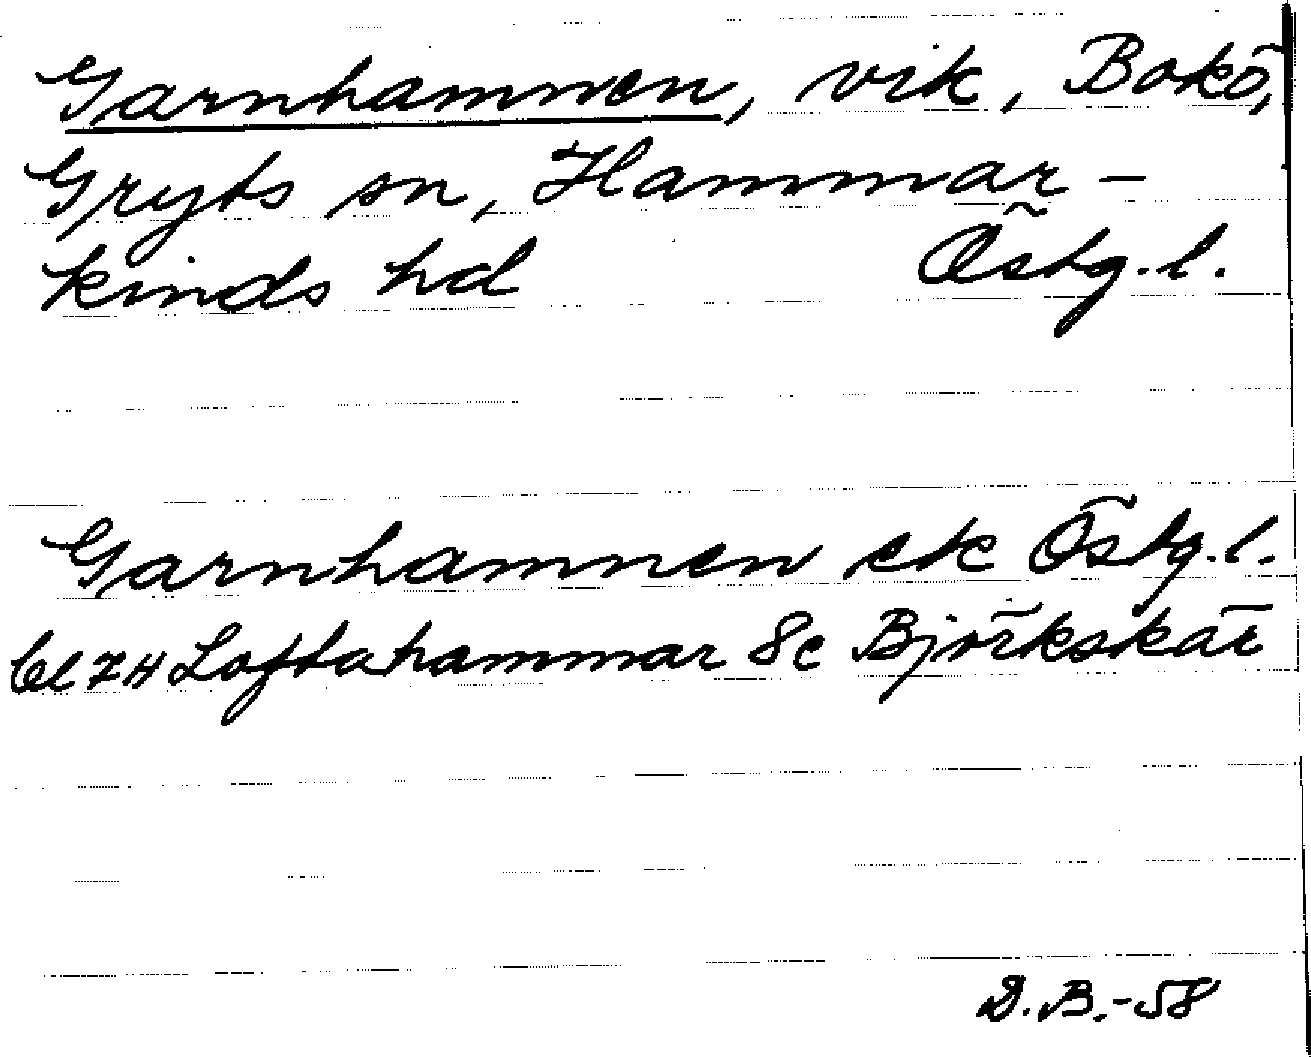 Garnhamnen, vik, Bokö,
Gryts sn, Hammar-
kinds hd Östg.l.
Garnhamnen ek Östg.l.
bl 7H Loftahammar 8c Björkskär
D.B.-58